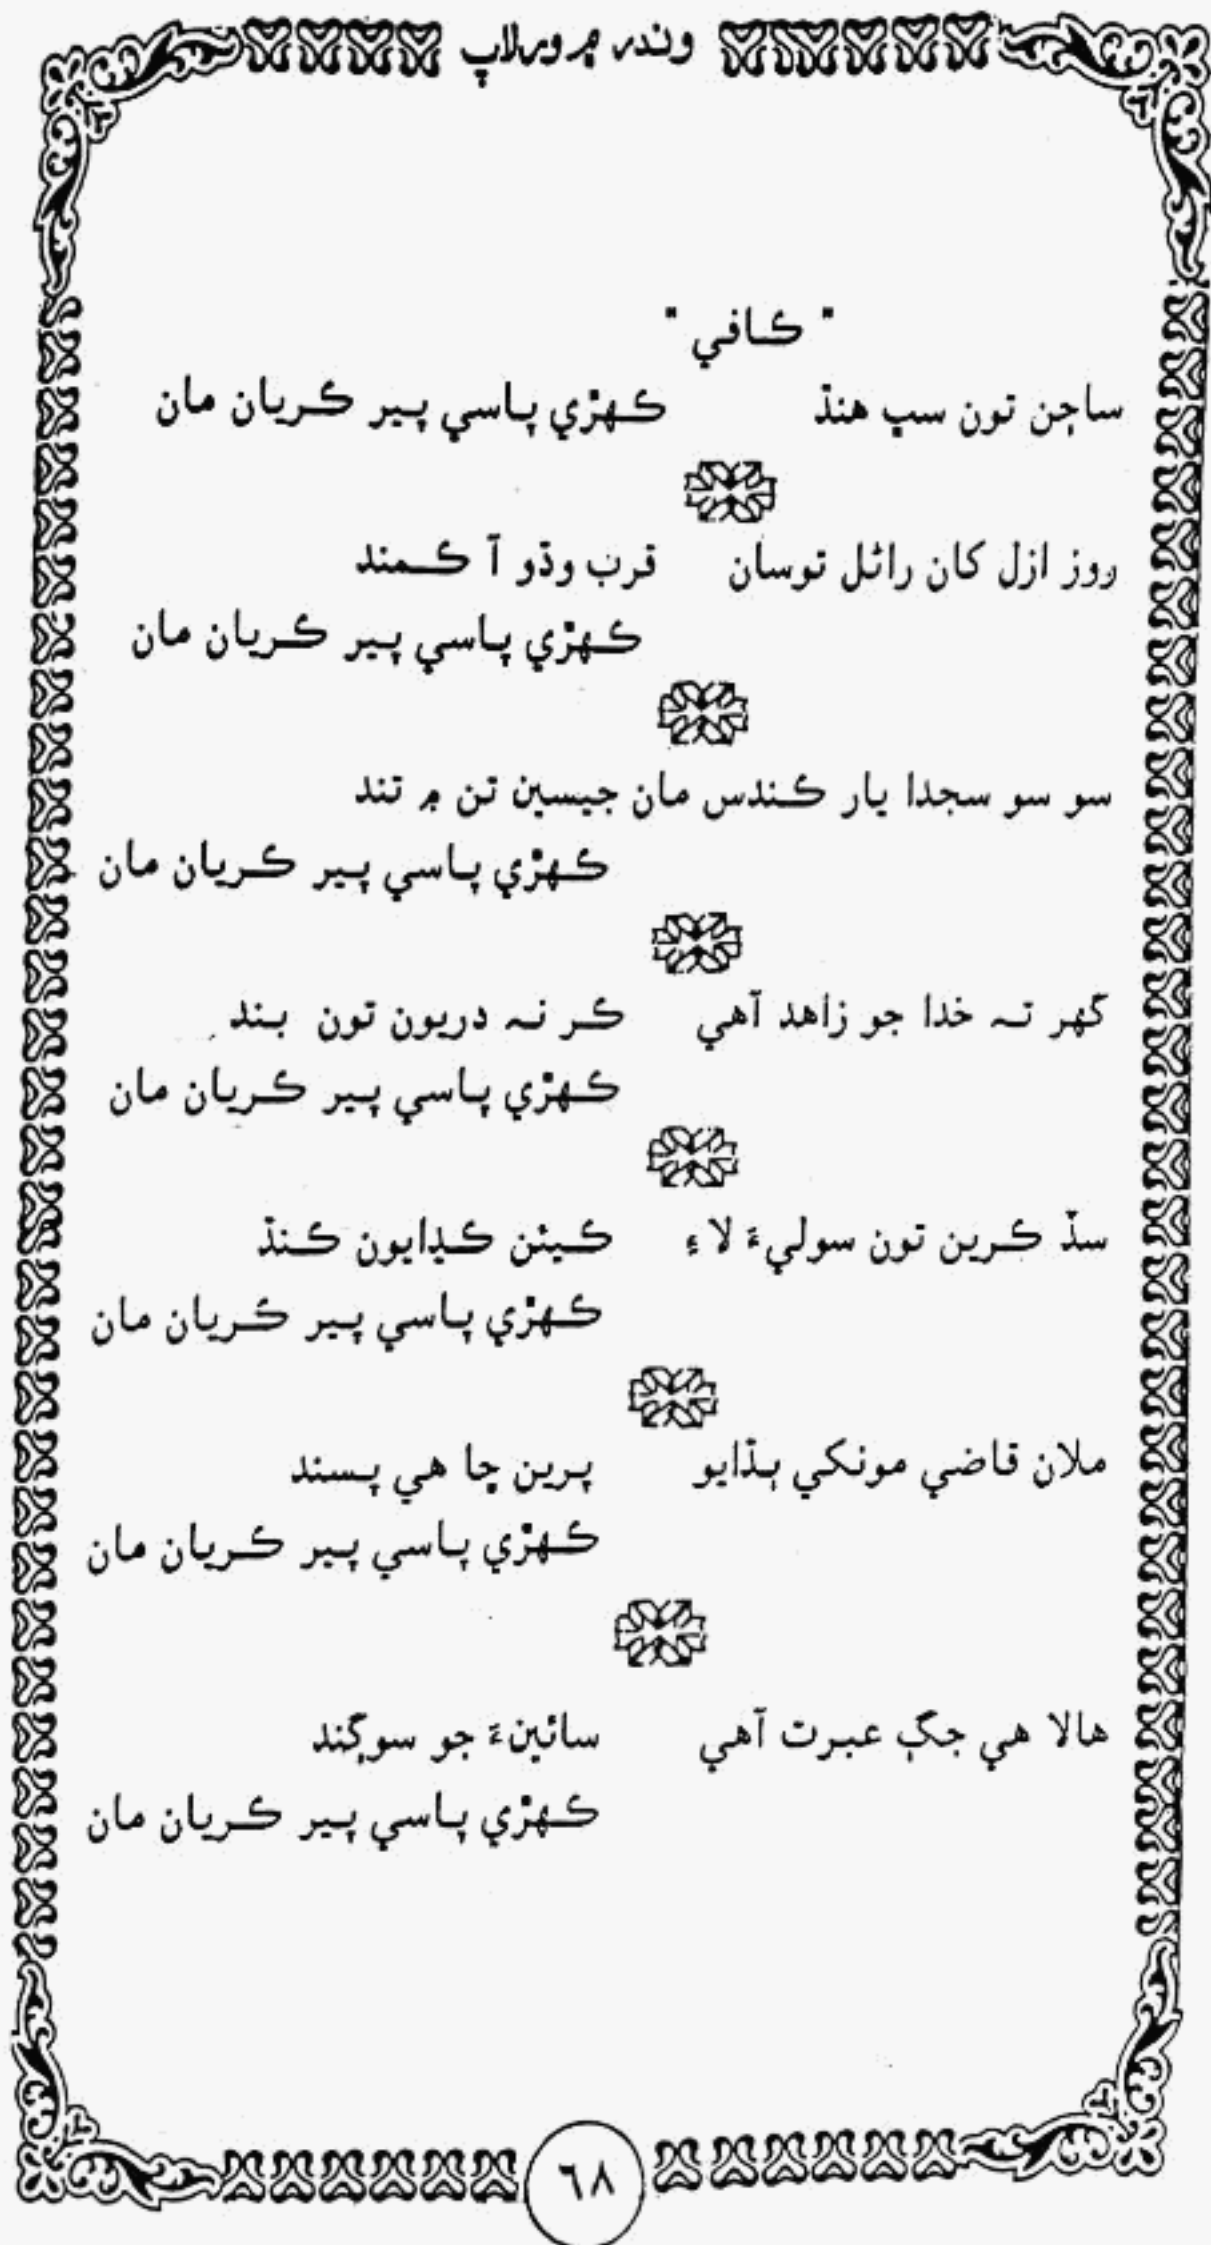 وندر ۾ ورلاپ
" ڪافي "
ساجن تون سڀ هنڌ ڪهڙي پاسي پير ڪريان مان
روز ازل کان راڻل توسان قرب وڌو آ ڪمند
ڪهڙي پاسي پير ڪريان مان
سو سو سجدا يار ڪندس مان جيسين تن ۾ تند
ڪهڙي پاسي پير ڪريان مان
گهر ته خدا جو زاهد آهي ڪر نه دريون تون بند
ڪهڙي پاسي پير ڪريان مان
سڏ ڪرين تون سوليءَ لاءِ ڪيئن ڪڍايون ڪنڌ
ڪهڙي پاسي پير ڪريان مان
ملان قاضي مونکي ٻڌايو پرين ڇا هي پسند
ڪهڙي پاسي پير ڪريان مان
هالا هي جڳ عبرت آهي سائينءَ جو سوڳند
ڪهڙي پاسي پير ڪريان مان
٦٨